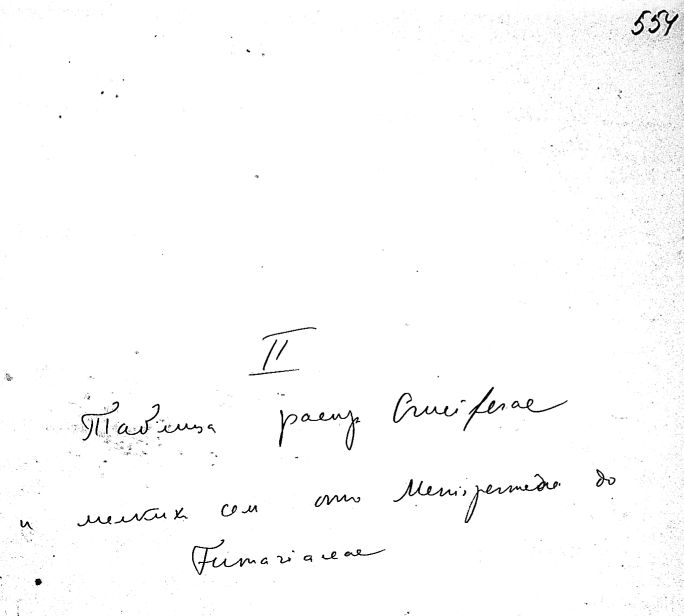 554
II
Таблица распр Cruciferae
и мелких сем от Menispermac до
Fumariaceae